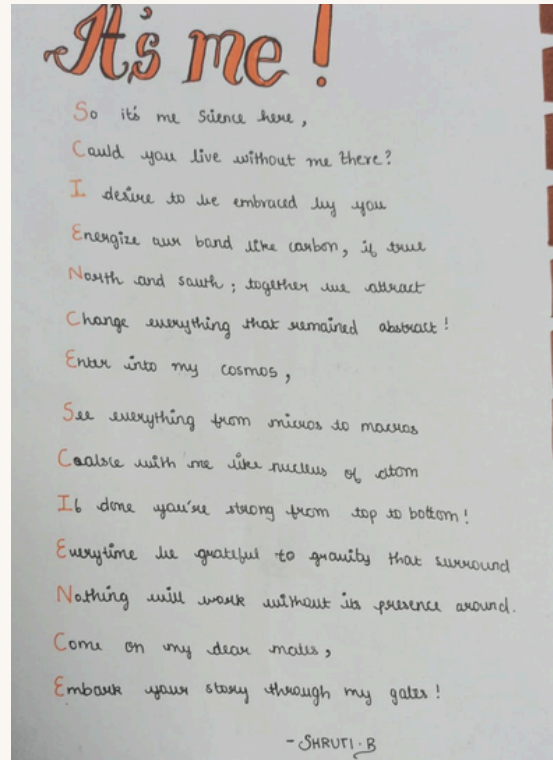 It's me!
So it's me science here,
Could you live without me there?
I desire to be embraced by you
Energize our bond like carbon, if true
North and south; together we attract
Change everything that remained abstract!
Enter into my cosmos,
See everything from micros to macros
Coalsce with me like nucleus of atom
If done you're strong from top to bottom!
Everytime be grateful to gravity that surround
Nothing will work without its presence around.
Come on my dear mates,
Embark your story through my gates!
- SHRUTI.B